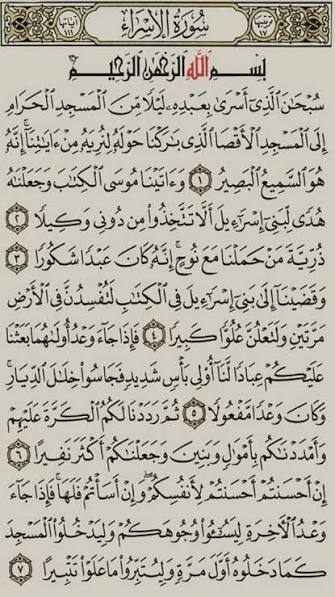 ترتيبها ١٧ سُورَةُ الإِسْرَاءِ آياتها ١١١
بِسْمِ ٱللَّهِ ٱلرَّحْمَٰنِ ٱلرَّحِيمِ
سُبْحَٰنَ ٱلَّذِىٓ أَسْرَىٰ بِعَبْدِهِۦ لَيْلًا مِّنَ ٱلْمَسْجِدِ ٱلْحَرَامِ
إِلَى ٱلْمَسْجِدِ ٱلْأَقْصَا ٱلَّذِى بَٰرَكْنَا حَوْلَهُۥ لِنُرِيَهُۥ مِنْ ءَايَٰتِنَآ ۚ إِنَّهُۥ
هُوَ ٱلسَّمِيعُ ٱلْبَصِيرُ ١ وَءَاتَيْنَا مُوسَى ٱلْكِتَٰبَ وَجَعَلْنَٰهُ
هُدًى لِّبَنِىٓ إِسْرَٰٓءِيلَ أَلَّا تَتَّخِذُوا۟ مِن دُونِى وَكِيلًا ٢
ذُرِّيَّةَ مَنْ حَمَلْنَا مَعَ نُوحٍ ۚ إِنَّهُۥ كَانَ عَبْدًا شَكُورًا ٣
وَقَضَيْنَآ إِلَىٰ بَنِىٓ إِسْرَٰٓءِيلَ فِى ٱلْكِتَٰبِ لَتُفْسِدُنَّ فِى ٱلْأَرْضِ
مَرَّتَيْنِ وَلَتَعْلُنَّ عُلُوًّا كَبِيرًا ٤ فَإِذَا جَآءَ وَعْدُ أُولَىٰهُمَا بَعَثْنَا
عَلَيْكُمْ عِبَادًا لَّنَآ أُو۟لِى بَأْسٍ شَدِيدٍ فَجَاسُوا۟ خِلَٰلَ ٱلدِّيَارِ ۚ
وَكَانَ وَعْدًا مَّفْعُولًا ٥ ثُمَّ رَدَدْنَا لَكُمُ ٱلْكَرَّةَ عَلَيْهِمْ
وَأَمْدَدْنَٰكُم بِأَمْوَٰلٍ وَبَنِينَ وَجَعَلْنَٰكُمْ أَكْثَرَ نَفِيرًا ٦
إِنْ أَحْسَنتُمْ أَحْسَنتُمْ لِأَنفُسِكُمْ ۖ وَإِنْ أَسَأْتُمْ فَلَهَا ۚ فَإِذَا جَآءَ
وَعْدُ ٱلْءَاخِرَةِ لِيَسُـۥٓـُٔوا۟ وُجُوهَكُمْ وَلِيَدْخُلُوا۟ ٱلْمَسْجِدَ
كَمَا دَخَلُوهُ أَوَّلَ مَرَّةٍ وَلِيُتَبِّرُوا۟ مَا عَلَوْا۟ تَتْبِيرًا ٧